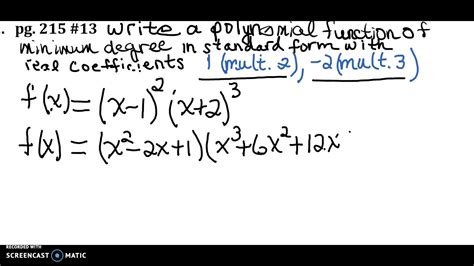 . pg. 215 #13 Write a polynomial function of
minimum degree in standard form with
real coefficients 1 (mult. 2), -2 (mult. 3)
f(x) = (x-1)² (x+2)³
f(x) = (x²-2x+1)(x³+6x²+12x
RECORDED WITH
SCREENCAST MATIC